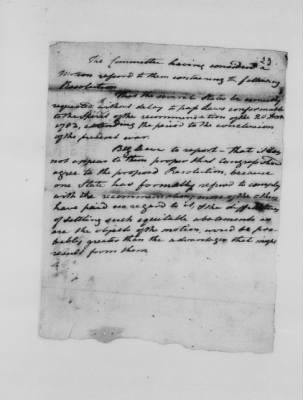 23
The Committee having considered a
Motion refered to them containing the following
Resolution
That the several States be earnestly
requested without delay to pass Laws conformable
to the Spirit of the recommendation of the 20
1782, extending the period to the conclusion
of the present war.
Beg leave to report - that it does
not appear to them proper that Congress should
agree to the proposed Resolution, because
one State has formally refused to comply
with the recommendation, none of the others
have paid any regard to it, & the difficulties
of settling such equitable abatements as
are the object of the motion, would be pro-
bably greater than the advantages that might
result from them